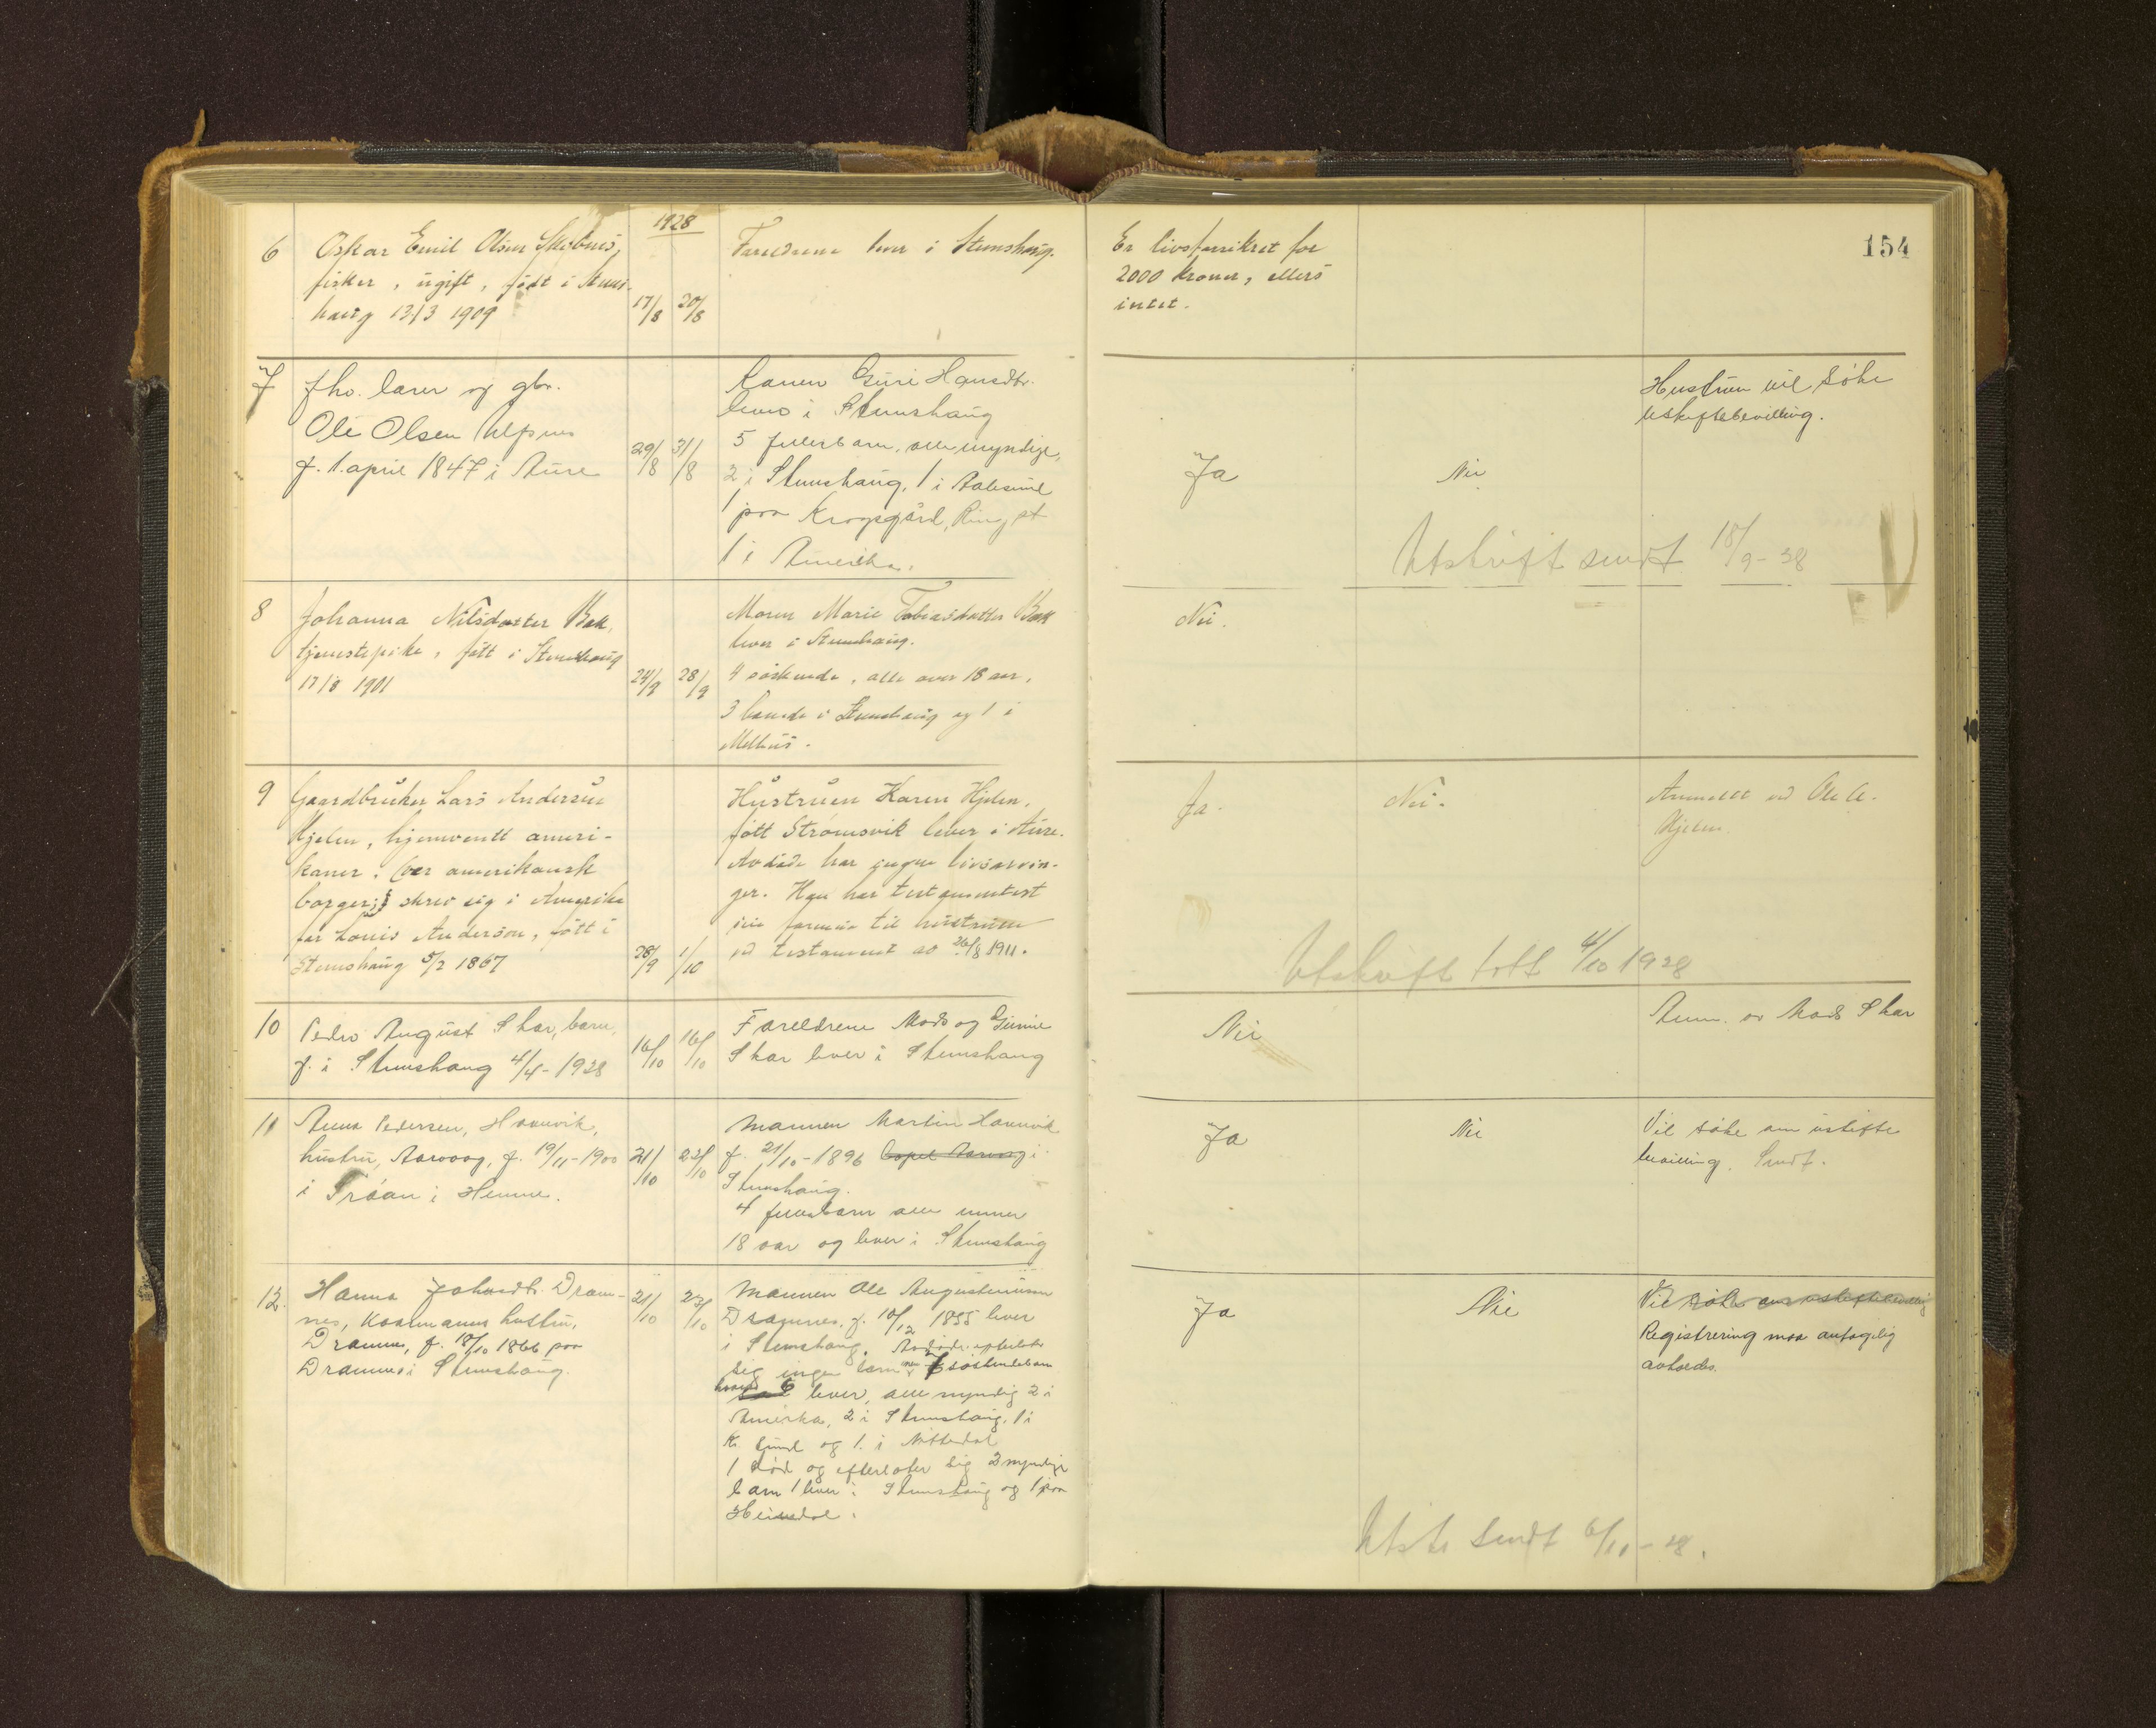 154
1928
6 Oskar Emil Olsen
fisker, ugift, født i Stems-
haug 13/3 1909
17/8 20/8
Foreldrene lever i Stemshaug.
Er livsforsikret for
2000 kroner, ellers
intet.
7 fhv. lærer og gbr.
Ole Olsen Ulfsnes
f. 1. april 1847 i Aure
29/8 31/8
Konen Guri Hansdtr.
lever i Stemshaug
5 fellesbarn, alle myndige,
2 i Stemshaug, 1 i Aalesund
1 paa Krogsgård, Ring st
1 i Amerika.
Ja
Nei
Hustruen vil søke
uskiftebevilling.
Utskrift sendt 18/9-28
8 Johanna Nilsdatter Bak,
tjenestepike, født i Stemshaug
17/8 1901
24/9 28/9
Moren Marie Tobiasdatter Bak
lever i Stemshaug.
4 søskende, alle over 18 aar,
3 boende i Stemshaug og 1 i
Melhus.
Nei.
9 Gaardbruker Lars Andersen
Hjelen, hjemvendt ameri-
kaner. (var amerikansk
borger;) skrev sig i Amerika
for Louis Anderson, født i
Stemshaug 5/2 1867
28/9 1/10
Hustruen Karen Hjelen,
født Strømsvik lever i Aure.
Avdøde har ingen livsarvin-
ger. Han har testamentert
sin formue til hustruen
ved testament av 26/8 1911.
Ja.
Nei.
Anmeldt ved Ole A.
Hjelen.
Utskrift tatt 4/10 1928
10 Peder August Skar, barn,
f. i Stemshaug 4/4-1928
16/10 16/10
Foreldrene Mads og Gunnie
Skar lever i Stemshaug
Nei
Anm. av Mads Skar
11 Anna Pedersen, Havnvik,
hustru, Aarvaag, f. 19/11-1900
i Trøan i Hemne.
21/10 23/10
Mannen Martin Havnvik
f. 21/10-1896 i
Stemshaug.
4 fellesbarn alle under
18 aar og lever i Stemshaug
Ja
Nei
Vil søke om uskifte
bevilling. Sendt.
12. Hanna Johnsdtr. Drom-
nes, Kaarmanns hustru,
Dromnes, f. 18/10 1866 paa
Dromnes i Stemshaug.
21/10 23/10
Mannen Ole Augustinusen
Dromnes, f. 10/12 1855 lever
i Stemshaug. Avdøde efterlater
sig ingen barn men 7 søskendebarn
hvorav 6 lever, alle myndig 2 i
Amerika, 2 i Stemshaug, 1 i
Kr. sund og 1 i Nittedal
1 død og efterlater sig 2 myndige
barn 1 lever i Stemshaug og 1 paa
Heimdal.
Ja
Nei
Vil søke om uskiftebevilling
Registrering maa antagelig
avholdes.
Utskr. sendt 6/11-28.